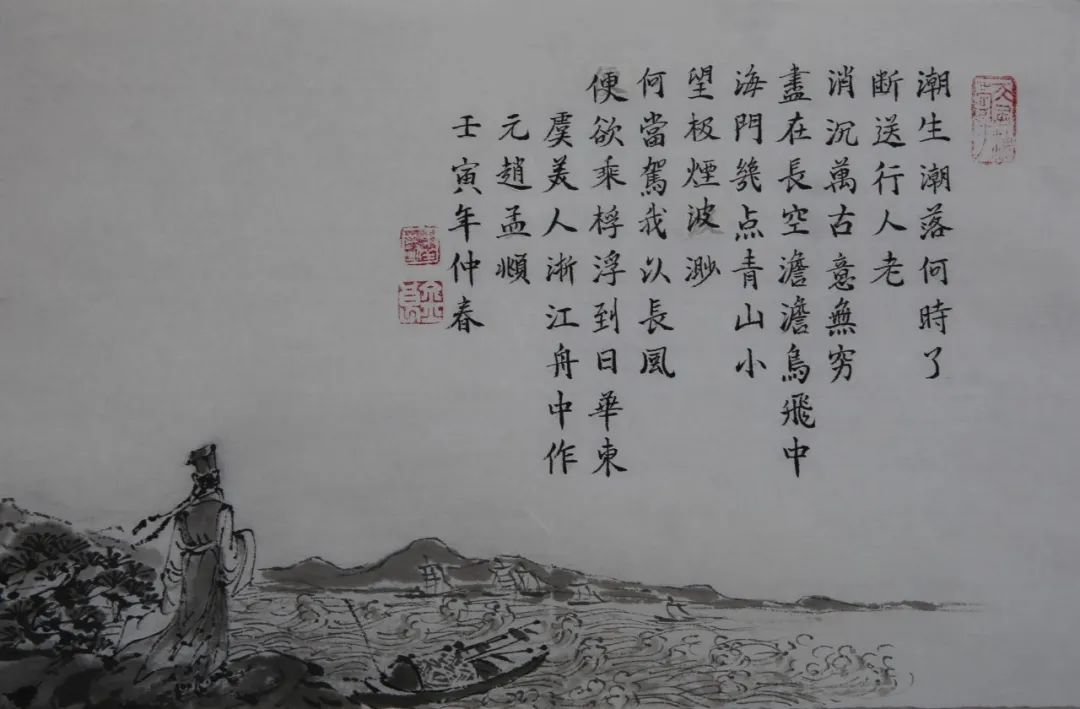 潮生潮落何時了
断送行人老
消沉萬古意無穷
盡在長空澹澹鳥飛中
海門幾点青山小
望极煙波渺
何當駕我以長風
便欲乘桴浮到日華東
虞美人浙江舟中作
元趙孟頫
壬寅年仲春